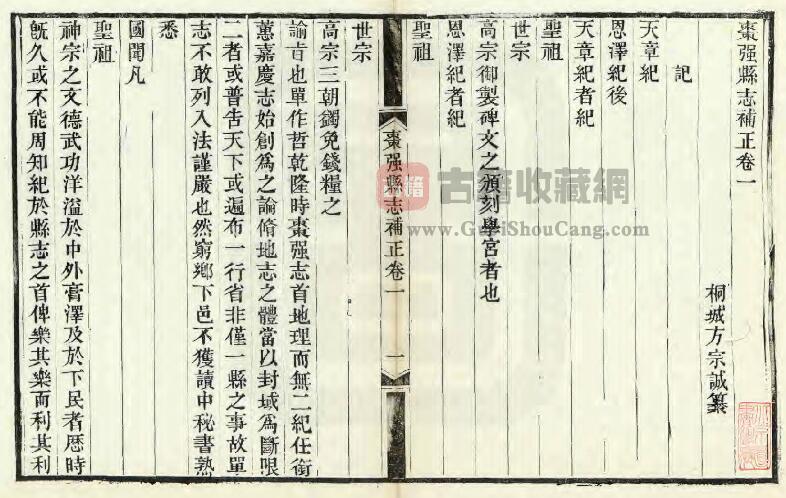 棗强縣志補正卷一
桐城方宗誠纂
記
天章紀
恩澤紀後
天章紀者紀
聖祖
世宗
高宗御製碑文之頒刻學宮者也
恩澤紀者紀
聖祖
棗强縣志補正卷一
一
世宗
高宗三朝蠲免錢糧之
諭旨也單作哲乾隆時棗强志首地理而無二紀任銜
蕙嘉慶志始創為之論脩地志之體當以封域為斷限
二者或普告天下或遍布一行省非僅一縣之事故單
志不敢列入法謹嚴也然窮鄉下邑不獲讀中秘書熟
悉
國聞凡
聖祖
神宗之文德武功洋溢於中外膏澤及於下民者歴時
既久或不能周知紀於縣志之首俾樂其樂而利其利
古籍收藏網
www.GuJiShouCang.com
古籍